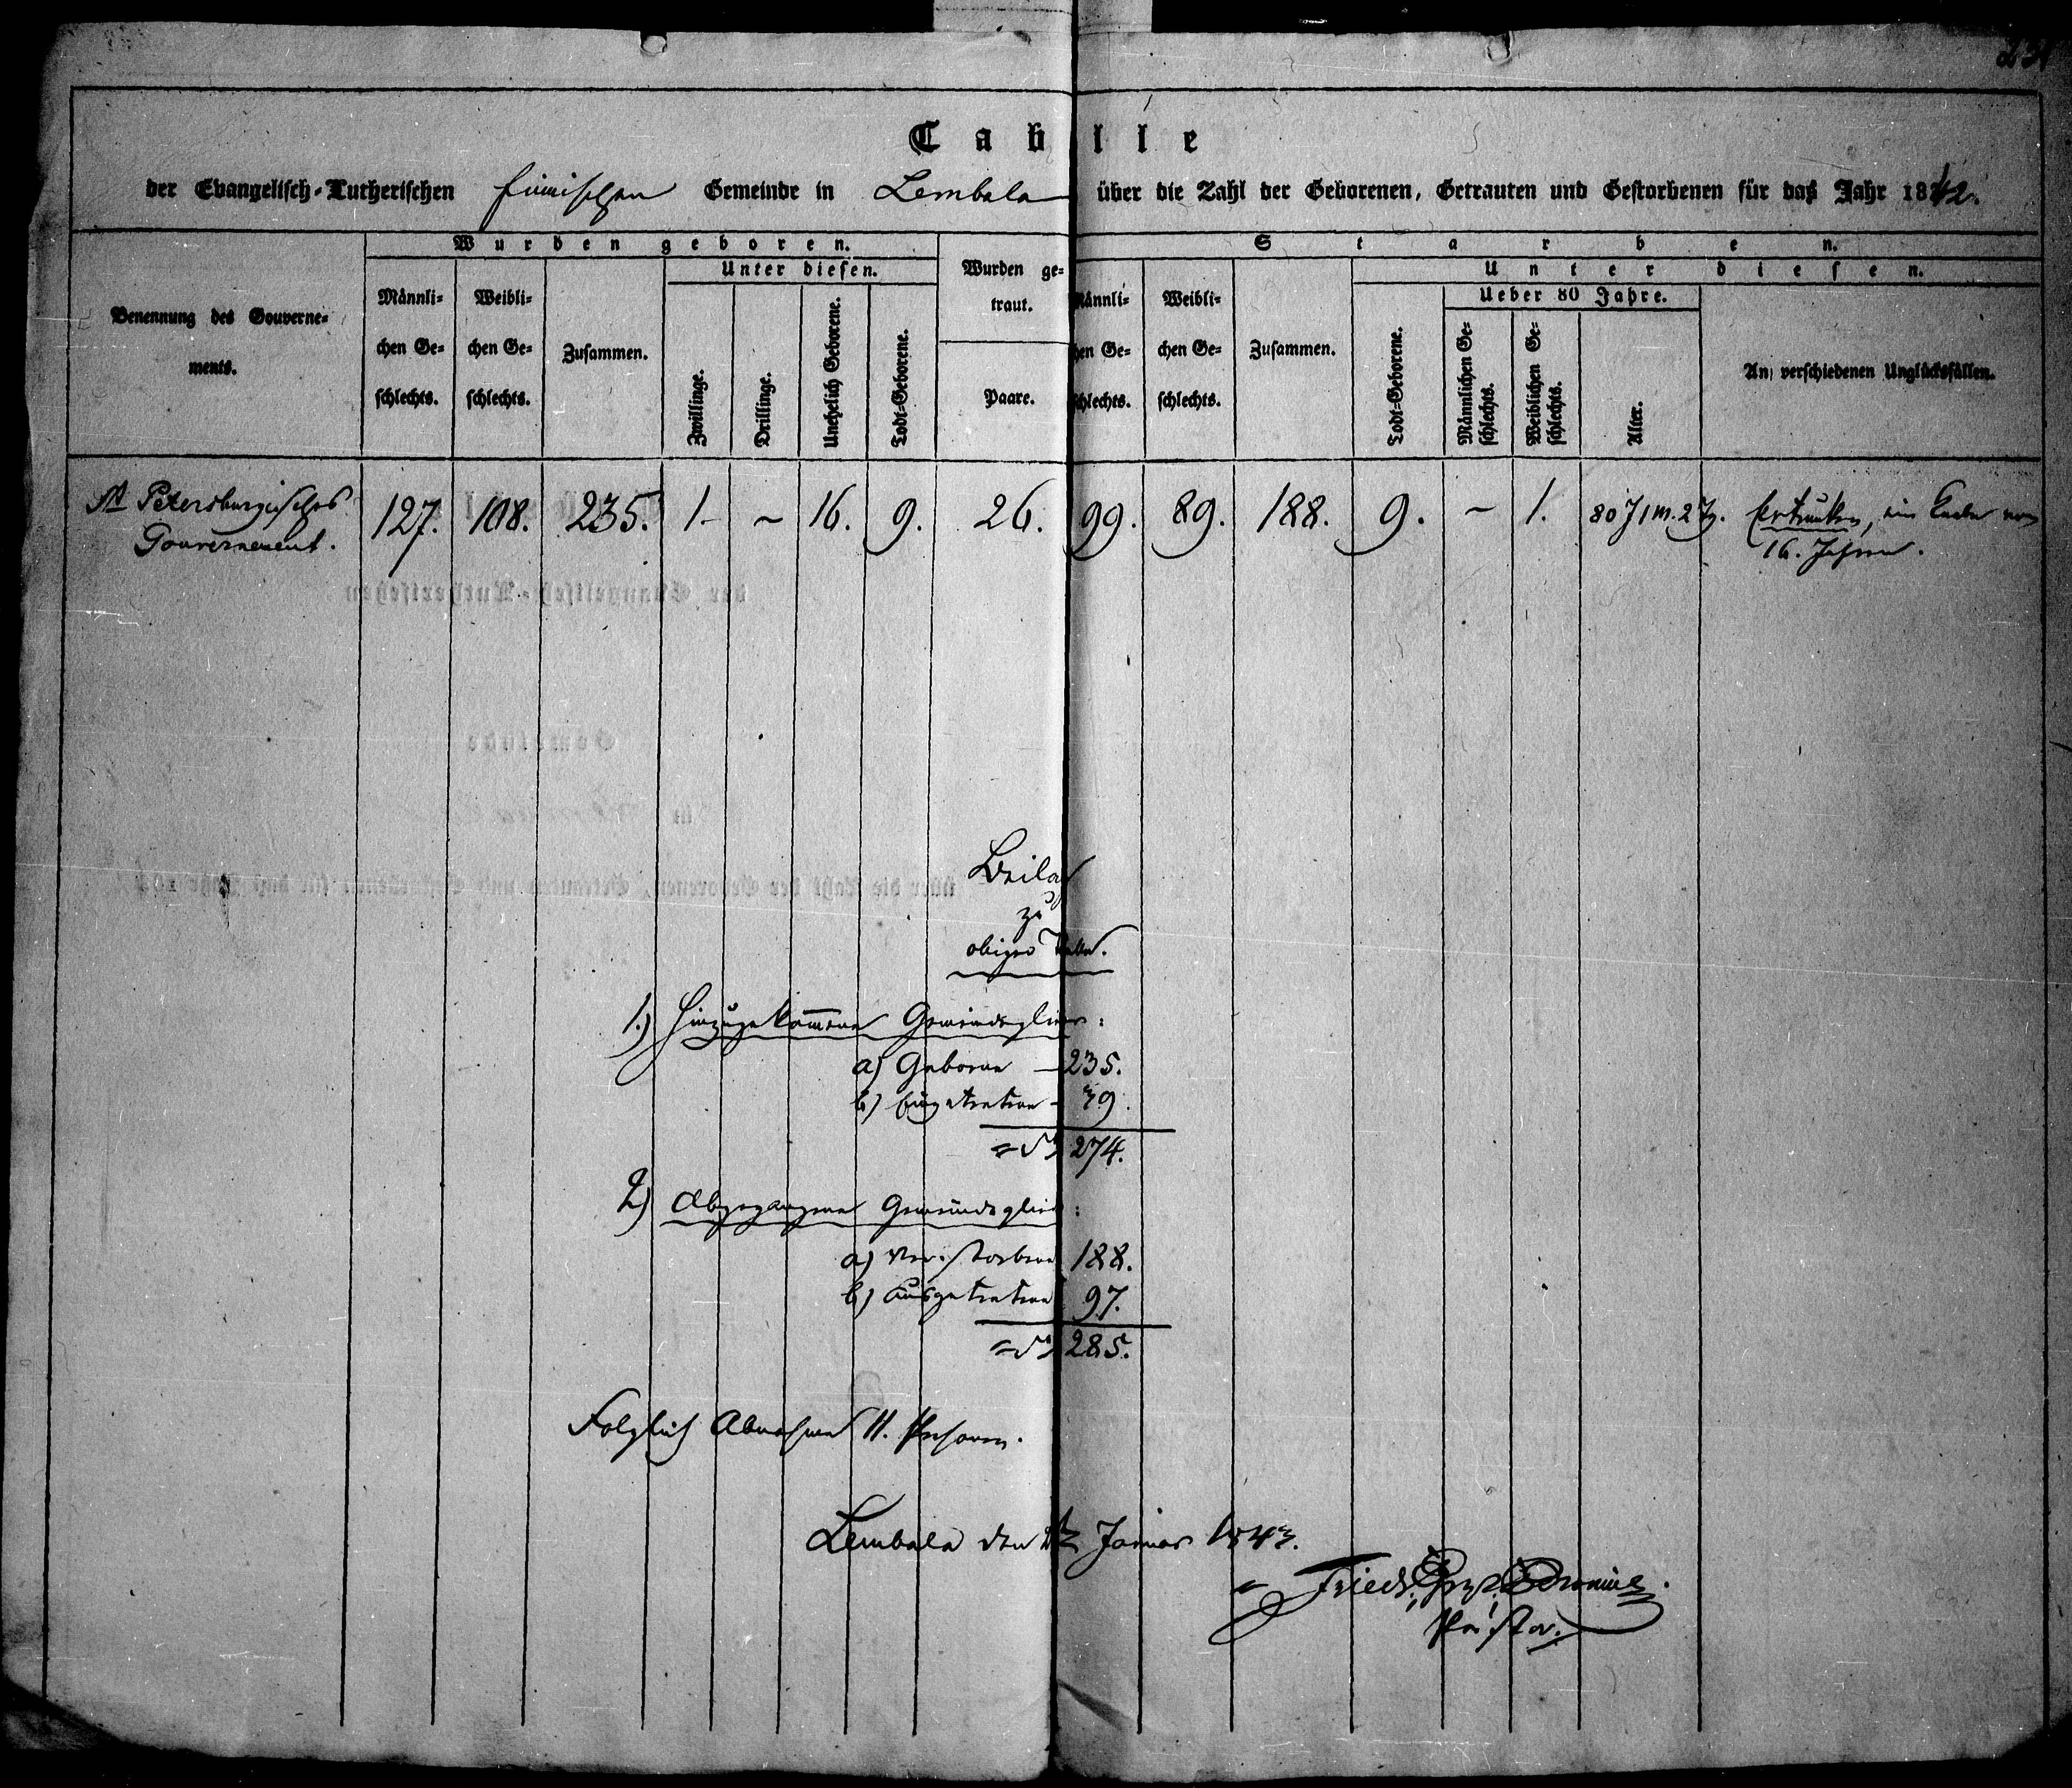 Tabelle
der Evangelisch-Lutherischen finnischen Gemeinde in Lembala über die Zahl der Geborenen, Getrauten und Gestorbenen für das Jahr 1842.
Benennung des Gouverne-
ments.
Wurden geboren.
Männli-
chen Ge-
schlechts.
Weibli-
chen Ge-
schlechts.
Zusammen.
Unter diesen.
Zwillinge.
Drillinge.
Unehelich Geborene.
Todt-Geborene.
Wurden ge-
traut.
Paare.
Starben.
Männli-
chen Ge-
schlechts.
Weibli-
chen Ge-
schlechts.
Zusammen.
Unter diesen.
Todt-Geborene.
Ueber 80 Jahre.
Männlichen Ge-
schlechts.
Weiblichen Ge-
schlechts.
Alter.
An verschiedenen Unglücksfällen.
St Petersburgisches 127. 108. 235. 1 - ~ 16. 9. 26. 99. 89. 188. 9. - 1. 80 J 1 M. 2 T. Ertrunken, ein Knabe von
Gouvernement. 16. Jahren.
Beilage
zu
obiger Tabelle.
1.) Hinzugekommene Gemeindeglieder:
a) Geborene — 235.
b) Eingetretene - 39.
= 274.
2) Abgegangene Gemeindeglieder:
a) Verstorbene 188.
b) Ausgetretene 97.
= 285.
Folglich Abnahme 11. Personen.
Lembala den Januar 1843.
Friedr.
Pastor.